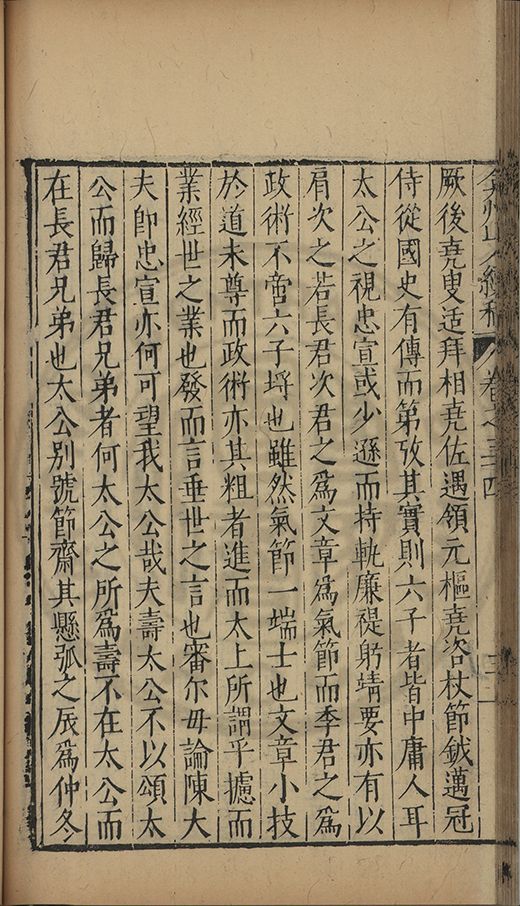 弇州山人續稿 卷之三十四
厥後堯叟适拜相堯佐遇領元樞堯咨杖節鉞邁冠
侍從國史有傳而第攷其實則六子者皆中庸人耳
太公之視忠宣或少遜而持軌廉禔躬靖要亦有以
肩次之若長君次君之爲文章爲氣節而季君之爲
政術不啻六子埒也雖然氣節一端士也文章小技
於道未尊而政術亦其粗者進而太上所謂乎攄而
業經世之業也發而言垂世之言也審尔毋論陳大
夫卽忠宣亦何可望我太公哉夫壽太公不以頌太
公而歸長君兄弟者何太公之所爲壽不在太公而
在長君兄弟也太公别號節齋其懸弧之辰爲仲冬